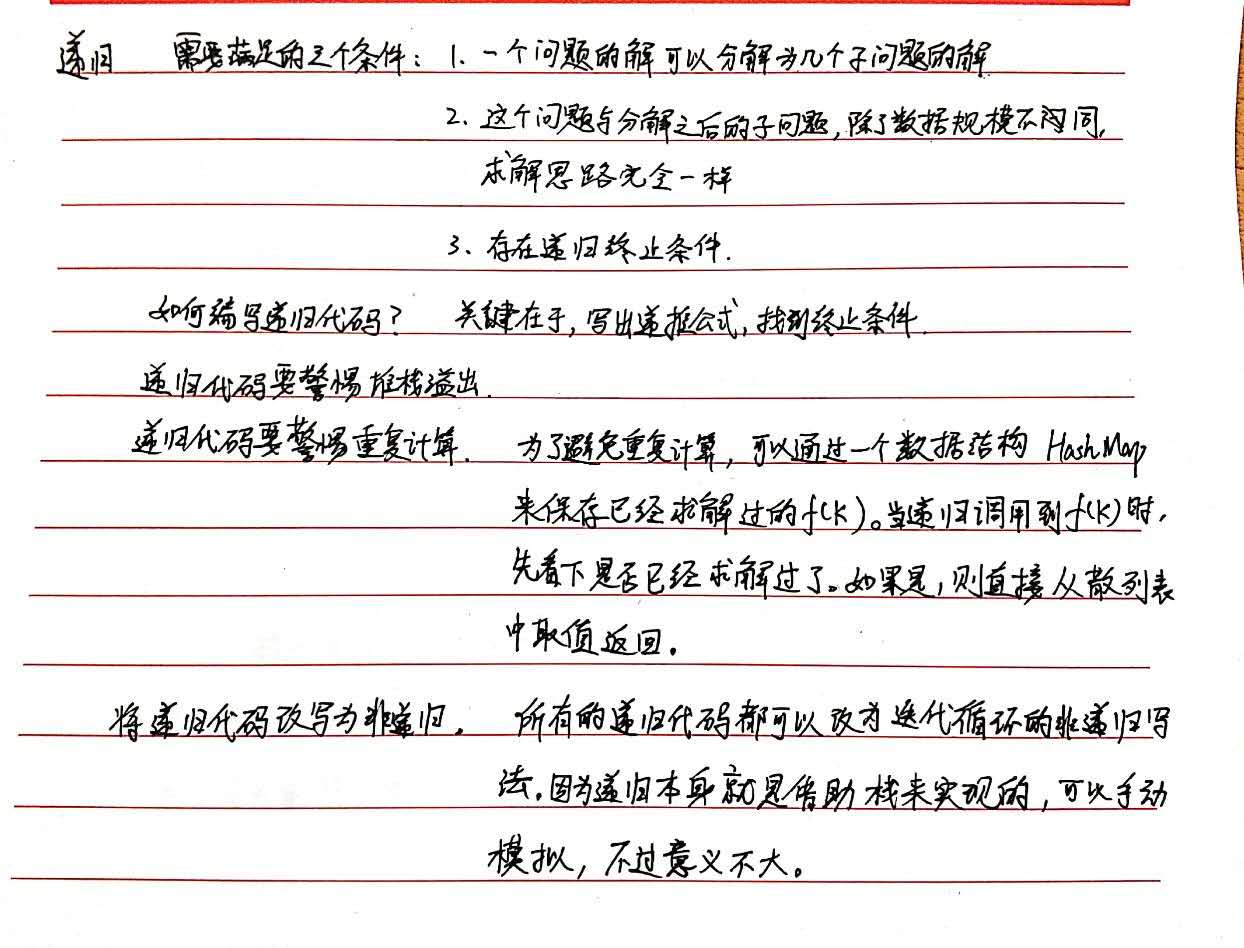 递归 需要满足的三个条件：1、一个问题的解可以分解为几个子问题的解
2、这个问题与分解之后的子问题，除了数据规模不同，
求解思路完全一样
3、存在递归终止条件.
如何编写递归代码？ 关键在于，写出递推公式，找到终止条件.
递归代码要警惕堆栈溢出.
递归代码要警惕重复计算. 为了避免重复计算，可以通过一个数据结构 HashMap
来保存已经求解过的f(k)。当递归调用到f(k)时，
先看下是否已经求解过了。如果是，则直接从散列表
中取值返回。
将递归代码改写为非递归. 所有的递归代码都可以改为迭代循环的非递归写
法.因为递归本身就是借助栈来实现的，可以手动
模拟，不过意义不大。